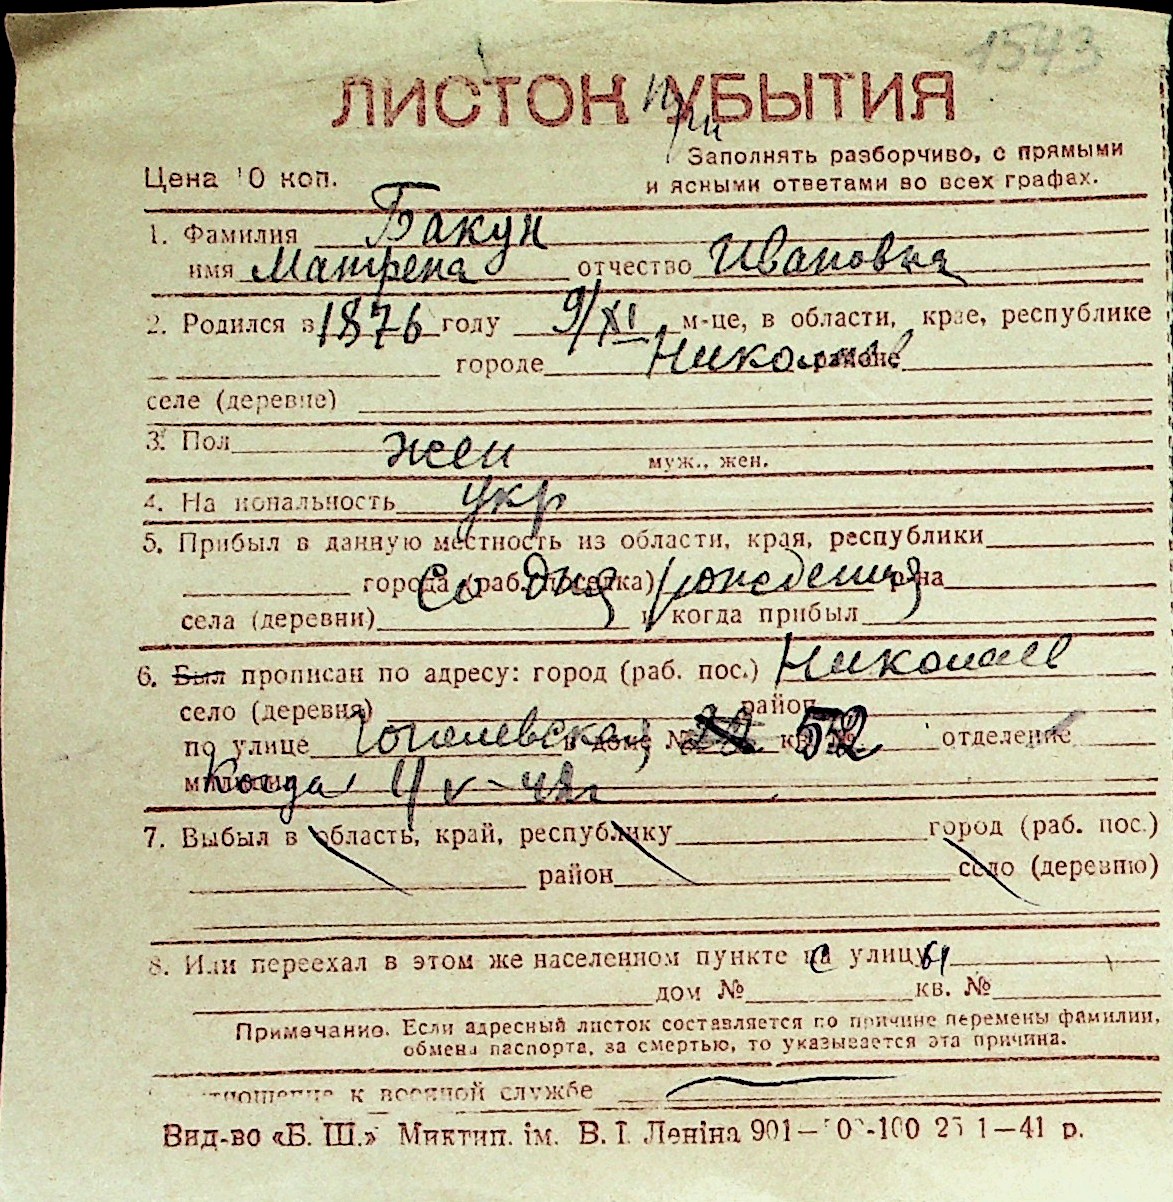 1543
ЛИСТОК УБЫТИЯ
при
Заполнять разборчиво, с прямыми
Цена 10 коп.
и ясными ответами во всех графах.
1. Фамилия Бакун
имя Матрена отчество Ивановна
2. Родился в 1876 году 9/XI м-це, в области, крае, республике
городе Николаев районе
селе (деревне)
3. Пол жен муж., жен.
4. На иональность укр
5. Прибыл в данную местность из области, края, республики
города (раб. поселка) Со дня рождения р-на
села (деревни) и когда прибыл
6. Был прописан по адресу: город (раб. пос.) Николаев
село (деревня) район
по улице Гоголевская, в доме № 52 кв. № отделение
милиции Когда 4/V-42г
7. Выбыл в область, край, республику город (раб. пос.)
район село (деревню)
8. Или переехал в этом же населенном пункте с улицы
дом № кв. №
Примечание. Если адресный листок составляется по причине перемены фамилии,
обмена паспорта, за смертью, то указывается эта причина.
тношение к военной службе
Вид-во «Б. Ш.» Миктип. ім. В. І. Леніна 901— -100 25 1—41 р.